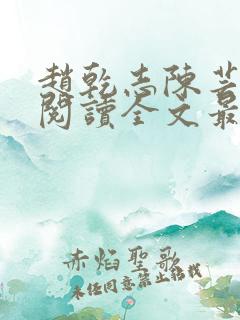 趙乾志陳芸
閱讀全文最
赤焰聖歌
未經同意禁止轉載